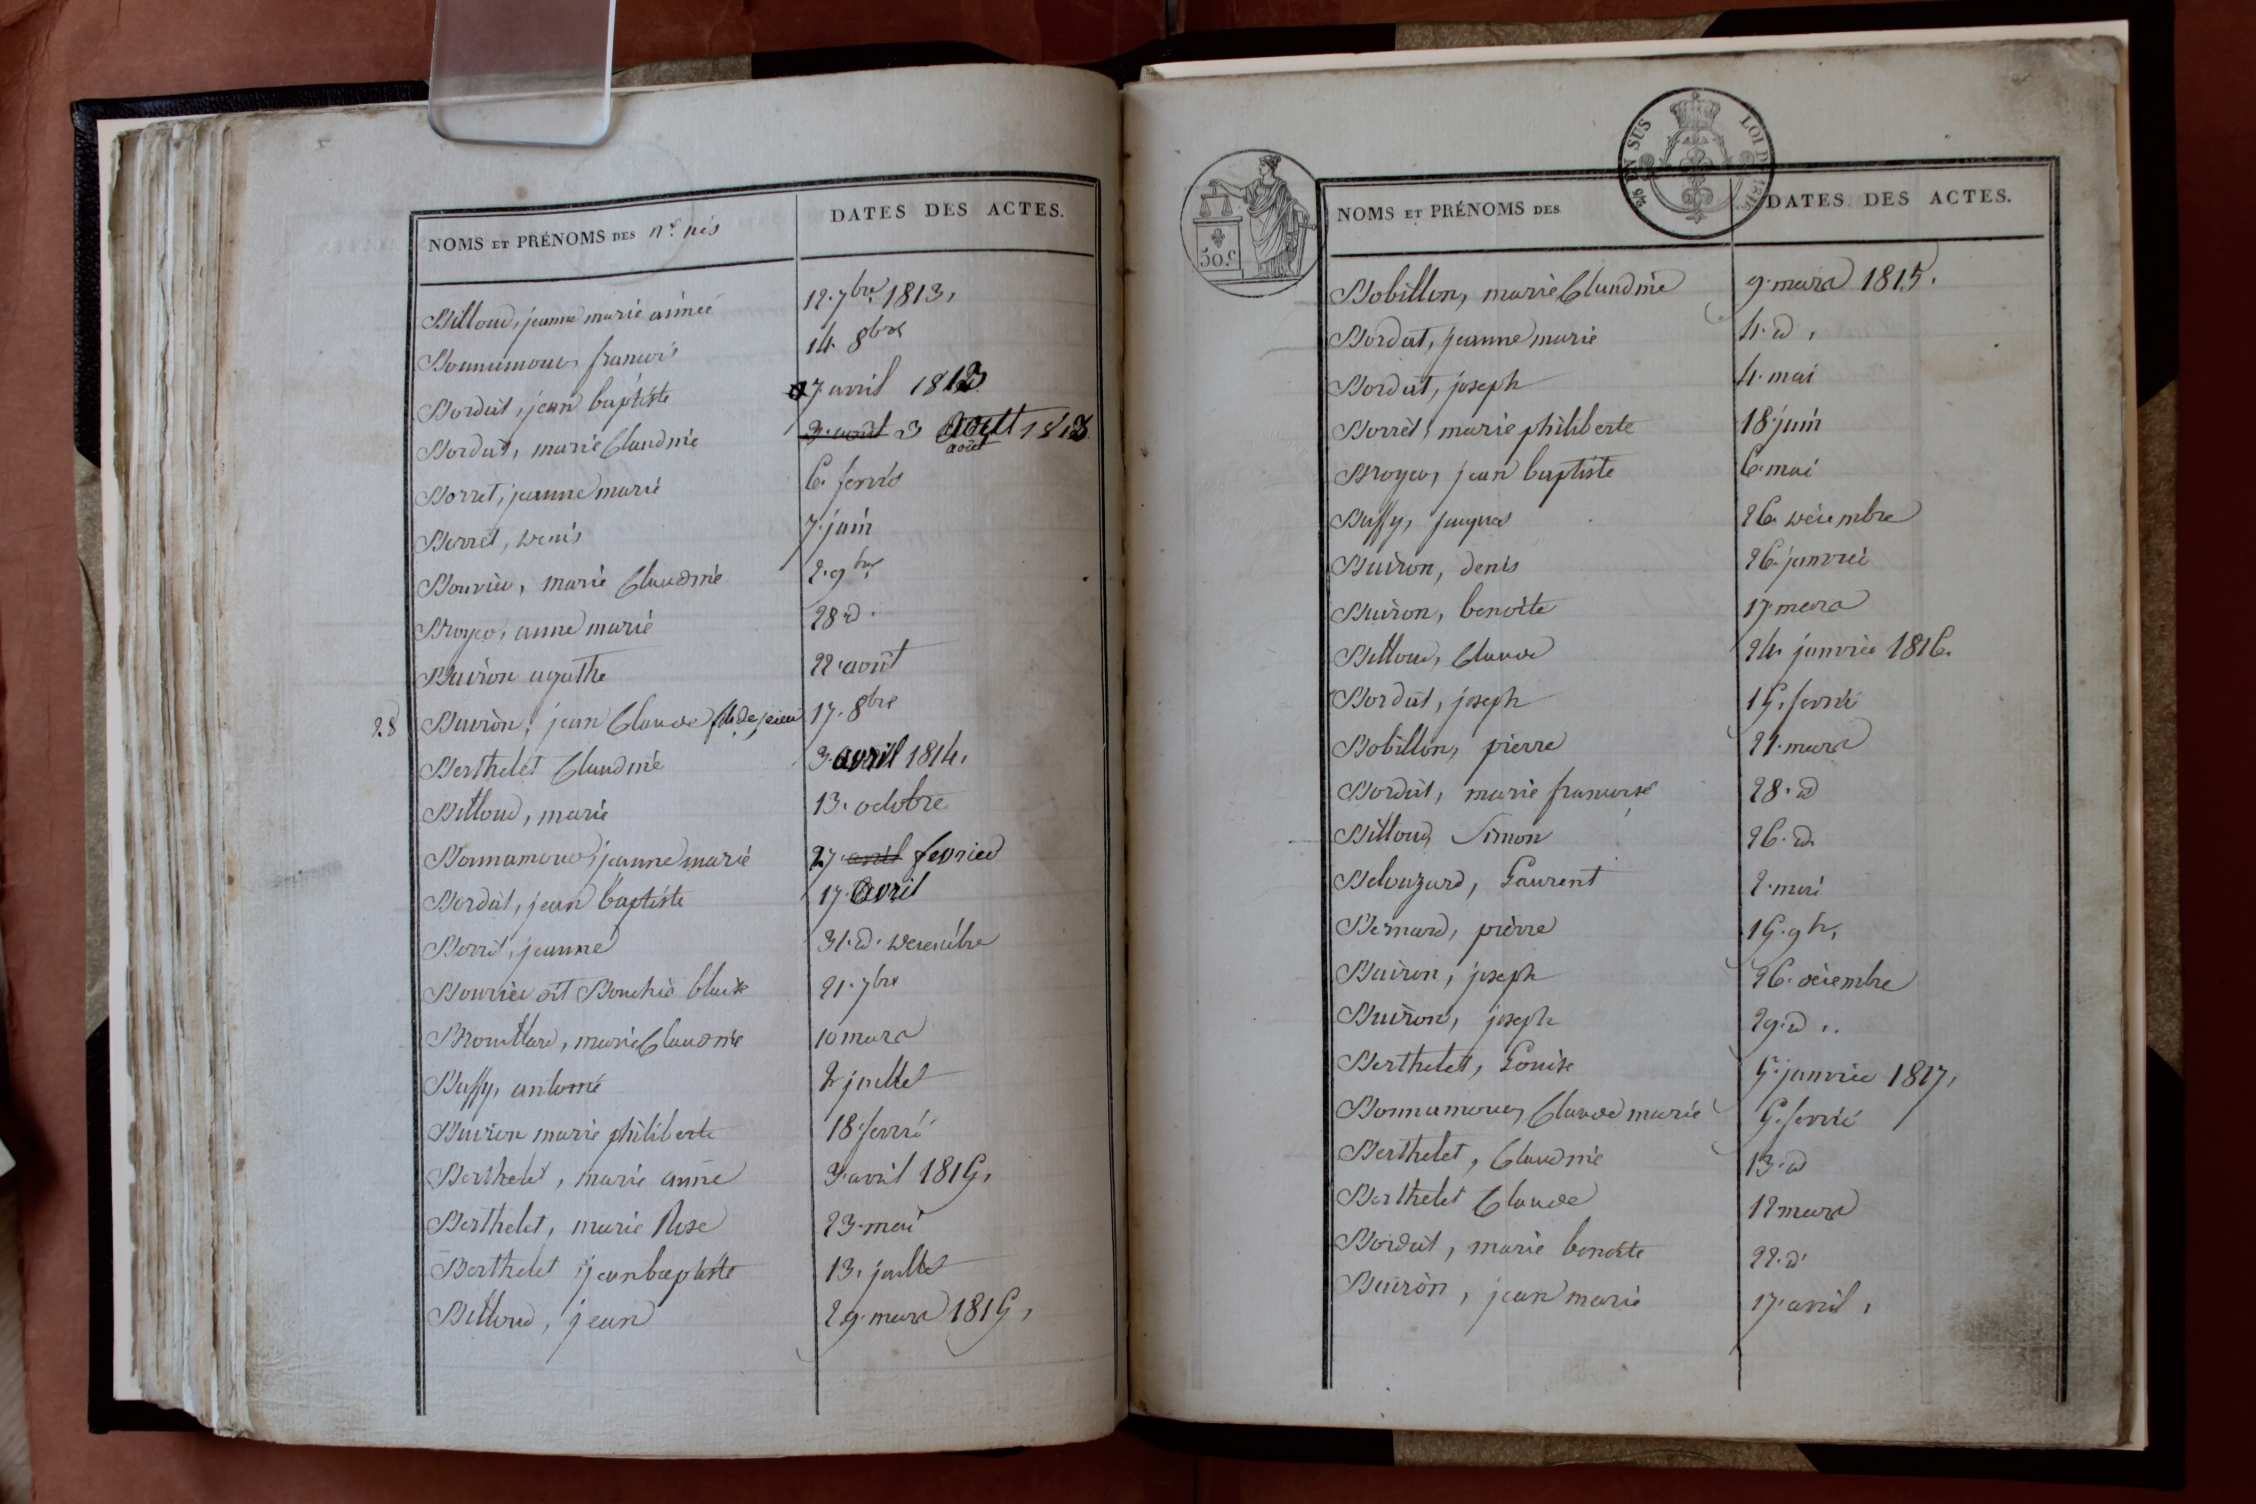 NOMS ET PRÉNOMS DES n.és nés
DATES DES ACTES.
Billoud, jeanne marie aimée 12. 7bre 1813,
Bonnamour, françois 14. 8bre
Bordat, jean baptiste 7 avril 1813
Bordat, marie Claudine 3. août 3 août 1813
août
Borret, jeanne marie 6. fevrié
Borret, denis 7. juin
Bouvier, marie Claudine 2. 9bre
Broyer, anne marie 28 d.
Buiron agathe 22 août
28 Buiron, jean Claude 17. 8bre
Berthelet Claudine 3 avril 1814,
Billoud, marie 13. octobre
Bonnamour, jeanne marie 27 avril fevrier
Bordat, jean baptiste 17. avril
Borret, jeanne 31. d. decembre
Bouvier dit Bouchié blaise 21. 7bre
Brouillard, marie Claudine 10 mars
Buffy, antoine 2 juillet
Buiron marie philiberte 18 fevrié
Berthelet, marie anne 3 avril 1815,
Berthelet, marie Rose 23. mai
Berthelet jean baptiste 13. juillet
Billoud, jean 29. mars 1815,
50.c
EN SUS
LOI D
NOMS ET PRÉNOMS DES
DATES DES ACTES.
Bobillon, marie Claudine 9. mars 1815.
Bordat, jeanne marie 4. d,
Bordat, joseph 4. mai
Borret, marie philiberte 18. juin
Broyer, jean baptiste 6. mai
Buffy, jacques 26. decembre
Buiron, denis 26. janvrié
Buiron, benoite 17. mars
Billoud, Claude 24. janvrie 1816.
Bordat, joseph 15. fevrié
Bobillon, pierre 21. mars
Bordat, marie françoise 28. d
Billoud, Simon 26. d.
Belouzard, Laurent 2. mai
Bernard, pierre 15. 9bre,
Buiron, joseph 26. décembre
Buiron, joseph 29. d..
Berthelet, Louise 5. janvrie 1817,
Bonnamour, Claude marie 5. fevrié
Berthelet, Claudine 13. d
Berthelet Claude 12 mars
Bordat, marie benoite 22. d
Buiron, jean marie 17. avril,